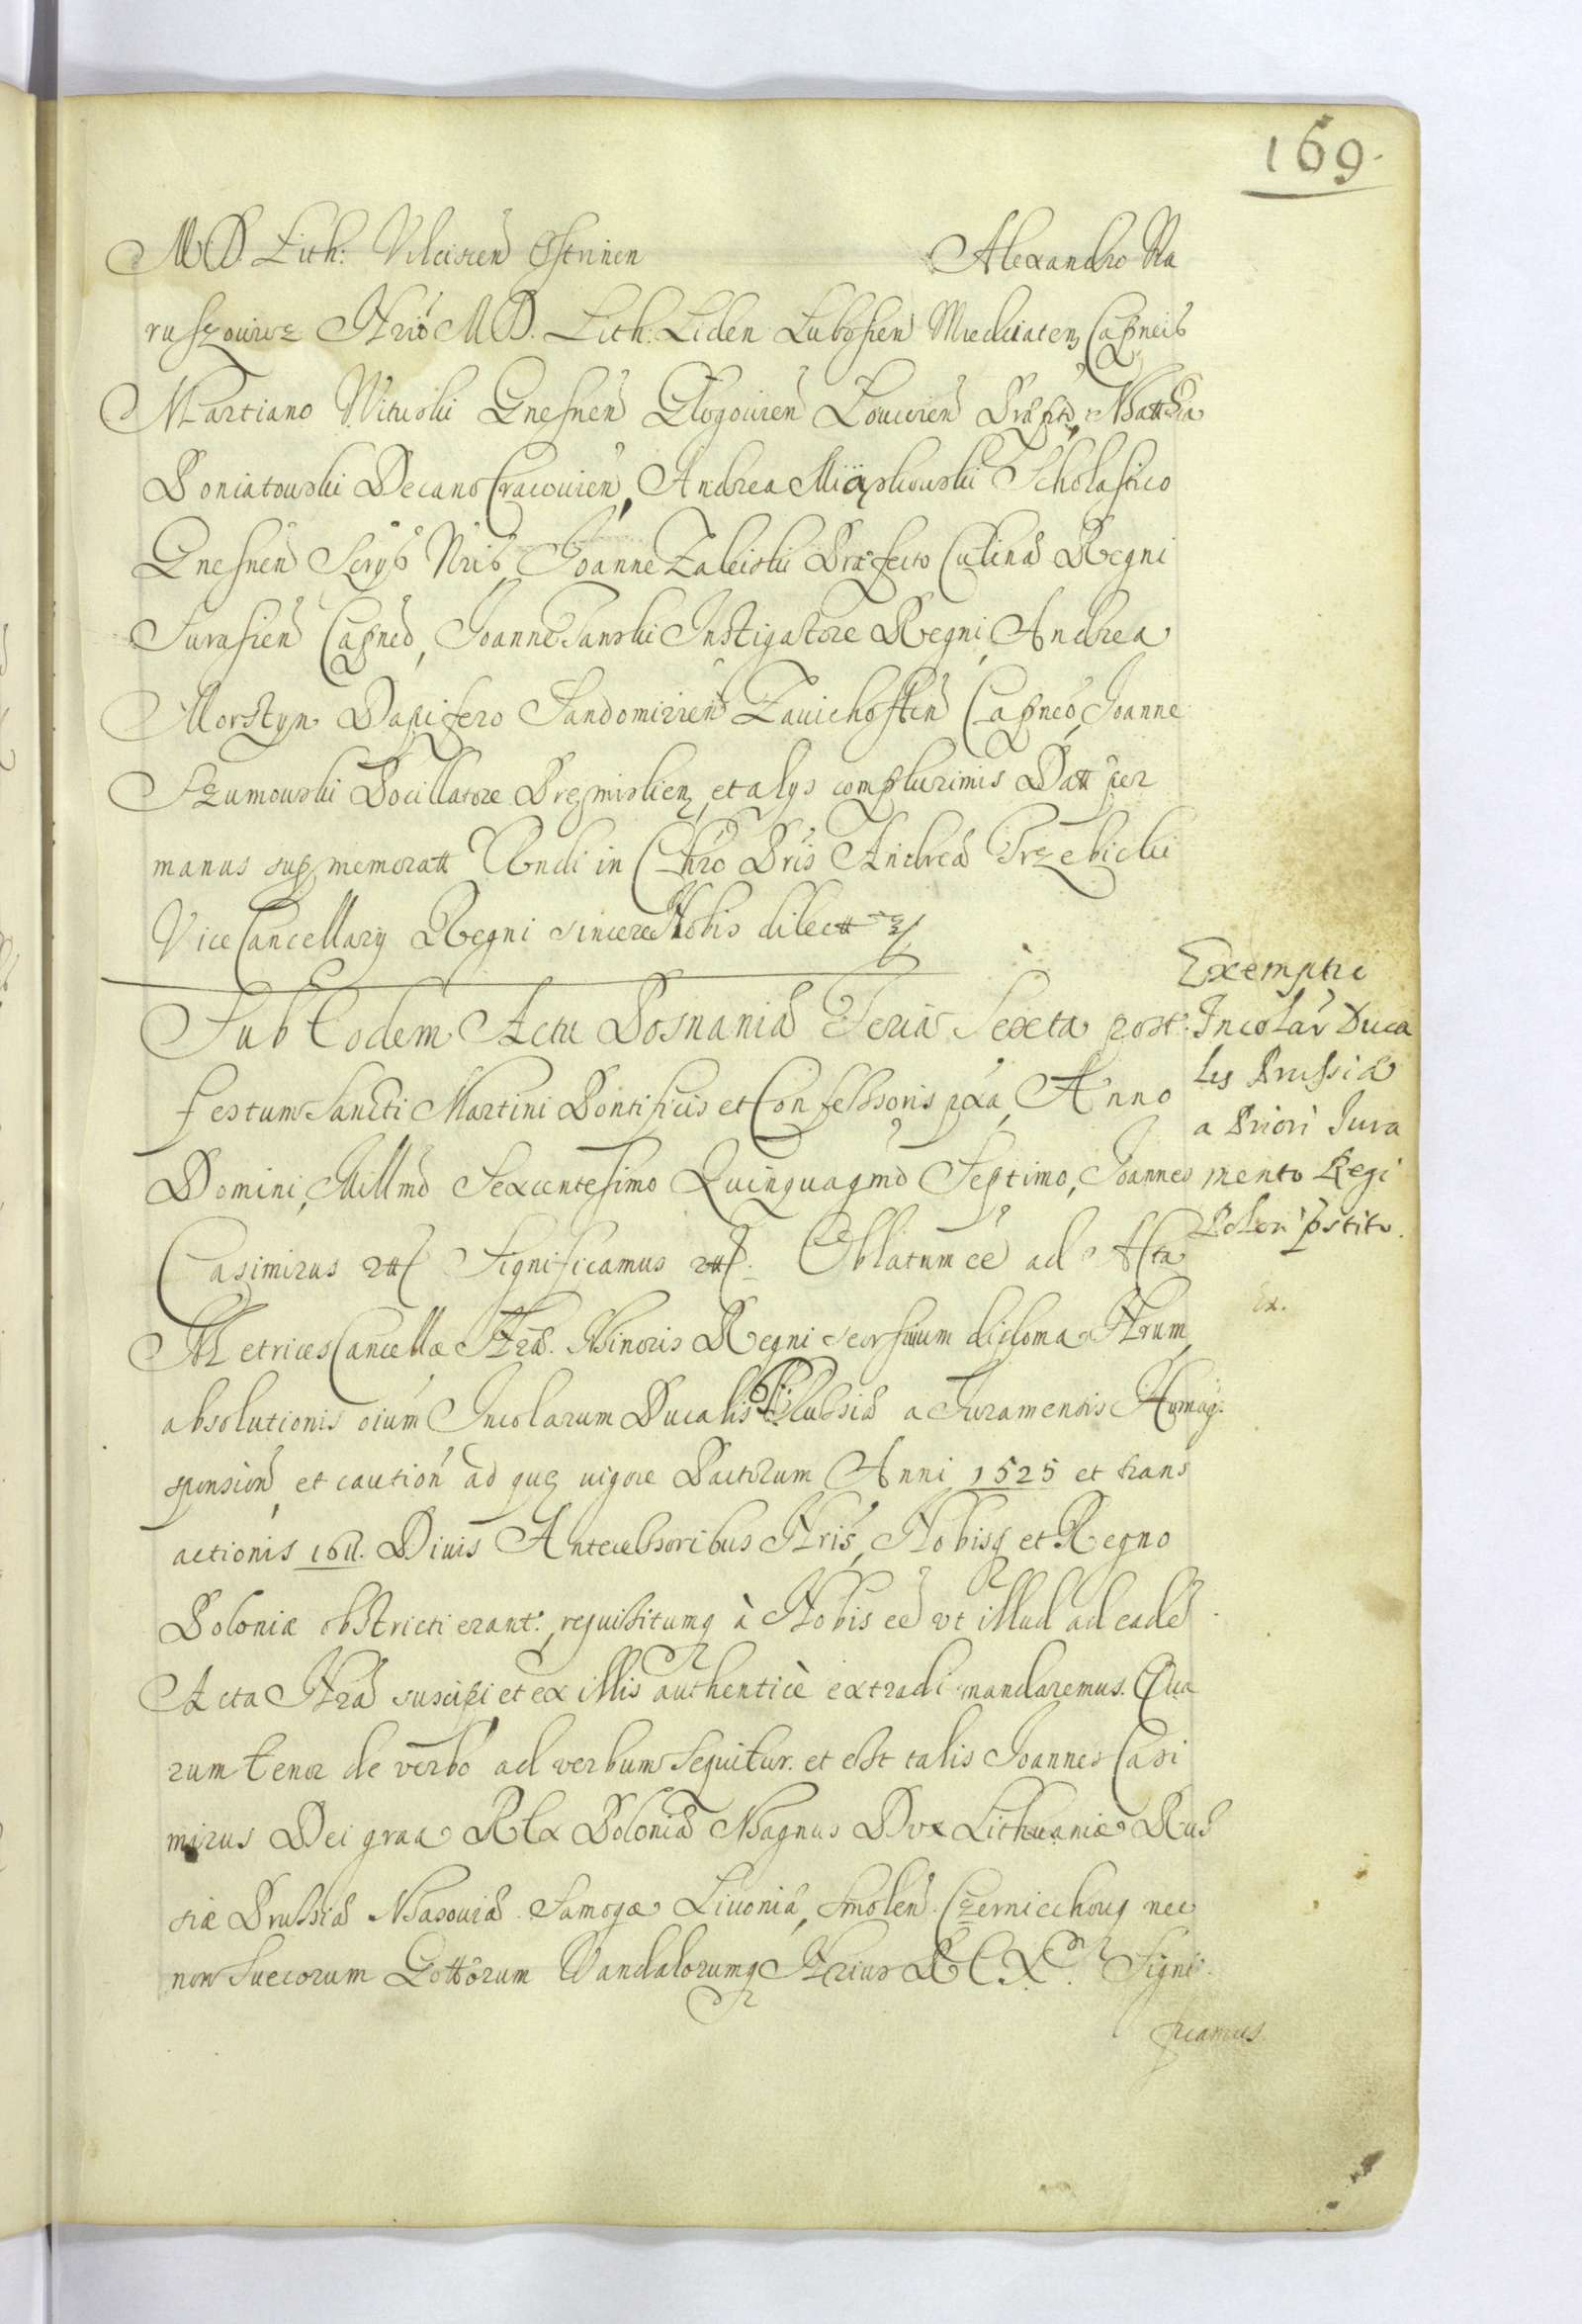 169.
M D. Lith: Vilcisien Ostrinen Alexandro Na
ruszowicz Nrio M D. Lith: Liden Lubossen Miedniaten Capneis
Martiano Wituski Gnesnen Glogovien Lovicien Prapto, Matthia
Poniatowski Decano Cracovien, Andrea Miaskowski Scholastico
Gnesnen Scrys Nris, Joanne Zaleiski Præfecto Culinæ Regni
Surasien Capneo, Joanne Tanski Instigatore Regni, Andrea
Morstyn Dapifero Sandomirien Zavichosten Capneo, Joanne
Szumowski Pocillatore Premislien, et alys complurimis Datt per
manus sup memoratt Rndi in Chro Pris Andreæ Trzebicki
Vice Cancellary Regni sincere Nobis dilectt
Exemptio
Incolar Duca
lis Prussiæ
a Priori Jura
mento Regi
Polon pstito.
Ex.
Sub Eodem Actu Posnaniæ Feria Sexta post
festum Sancti Martini Pontificis et Confessoris pxa, Anno
Domini, Millmo Sexcentesimo Quinquagmo Septimo, Joannes
Casimirus ett Significamus ett. Oblatum ee ad Acta
Metrices Cancellæ Nræ. Minoris Regni seorsivum diploma Nrum,
absolutionis oium Incolarum Ducalis Prussiæ a Juramentis Homag.
sponsion, et caution ad quæ vigore Pactorum Anni 1525 et trans
actionis 1611. Divis Antecessoribus Nris, Nobisq et Regno
Poloniæ obstricti erant, requisitumq à Nobis ee vt illud ad eade
Acta Nra suscipi et ex illis authenticè extradi mandaremus. Qua
rum tenor de verbo ad verbum sequitur. et est talis Joannes Casi
mirus Dei graa Rex Poloniæ Magnus Dux Lithuaniæ Rus
siæ Prussiæ Masoviæ Samogæ Livoniæ, Smolen. Czerniechovq nec
non Suecorum Gottorum Vandalorumq Hrius REX. Signi
ficamus